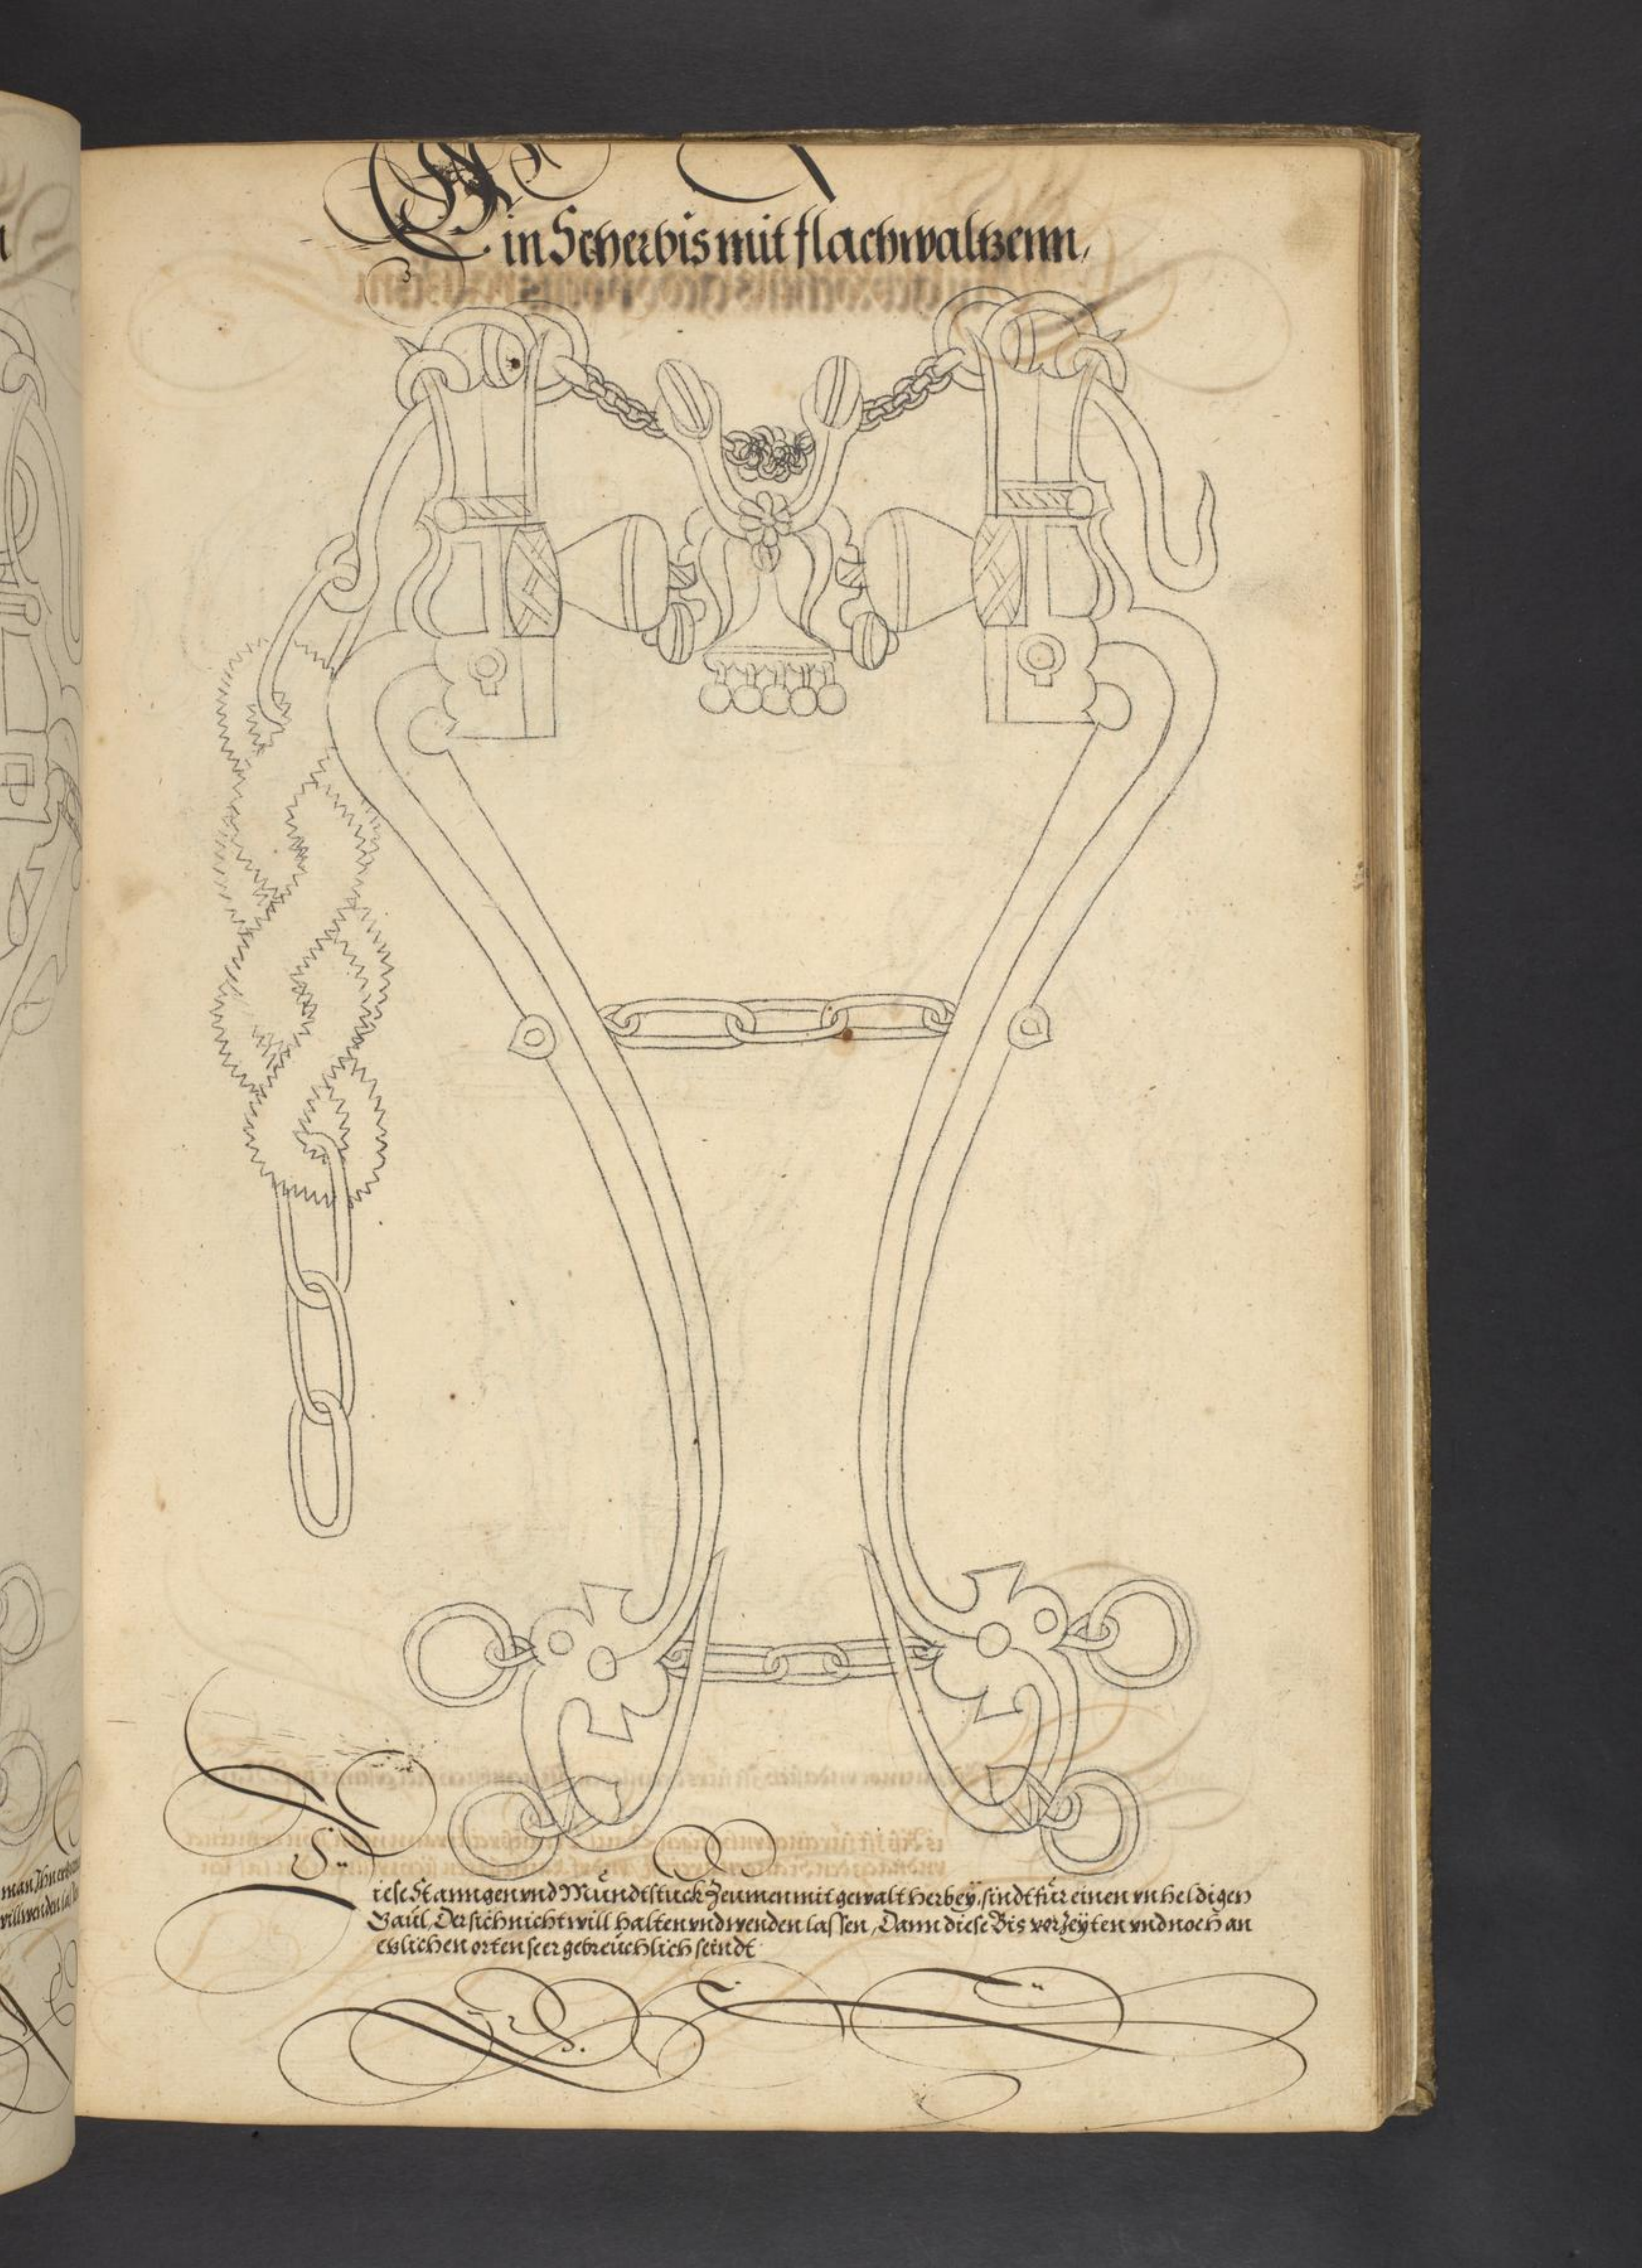 Ein Scherbis mit flachwaltzenn,
Diese Stanngen vnd Mündtstuck Zeumen mit gewalt herbey, sindt für einen vnheldigen
Gaül, Der sich nicht will halten vnd wenden lassen, Dann diese Bis vor Zeÿten vnd noch an
etzlichen orten seer gebreüchlich seindt